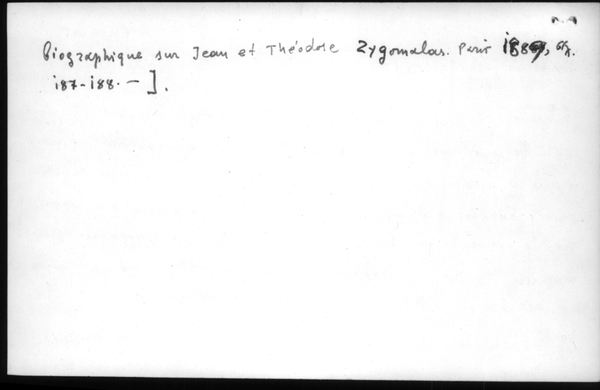 Biographique sur Jean et Théodose Zygomalas. Paris 1889, σελ.
187-188. — ].